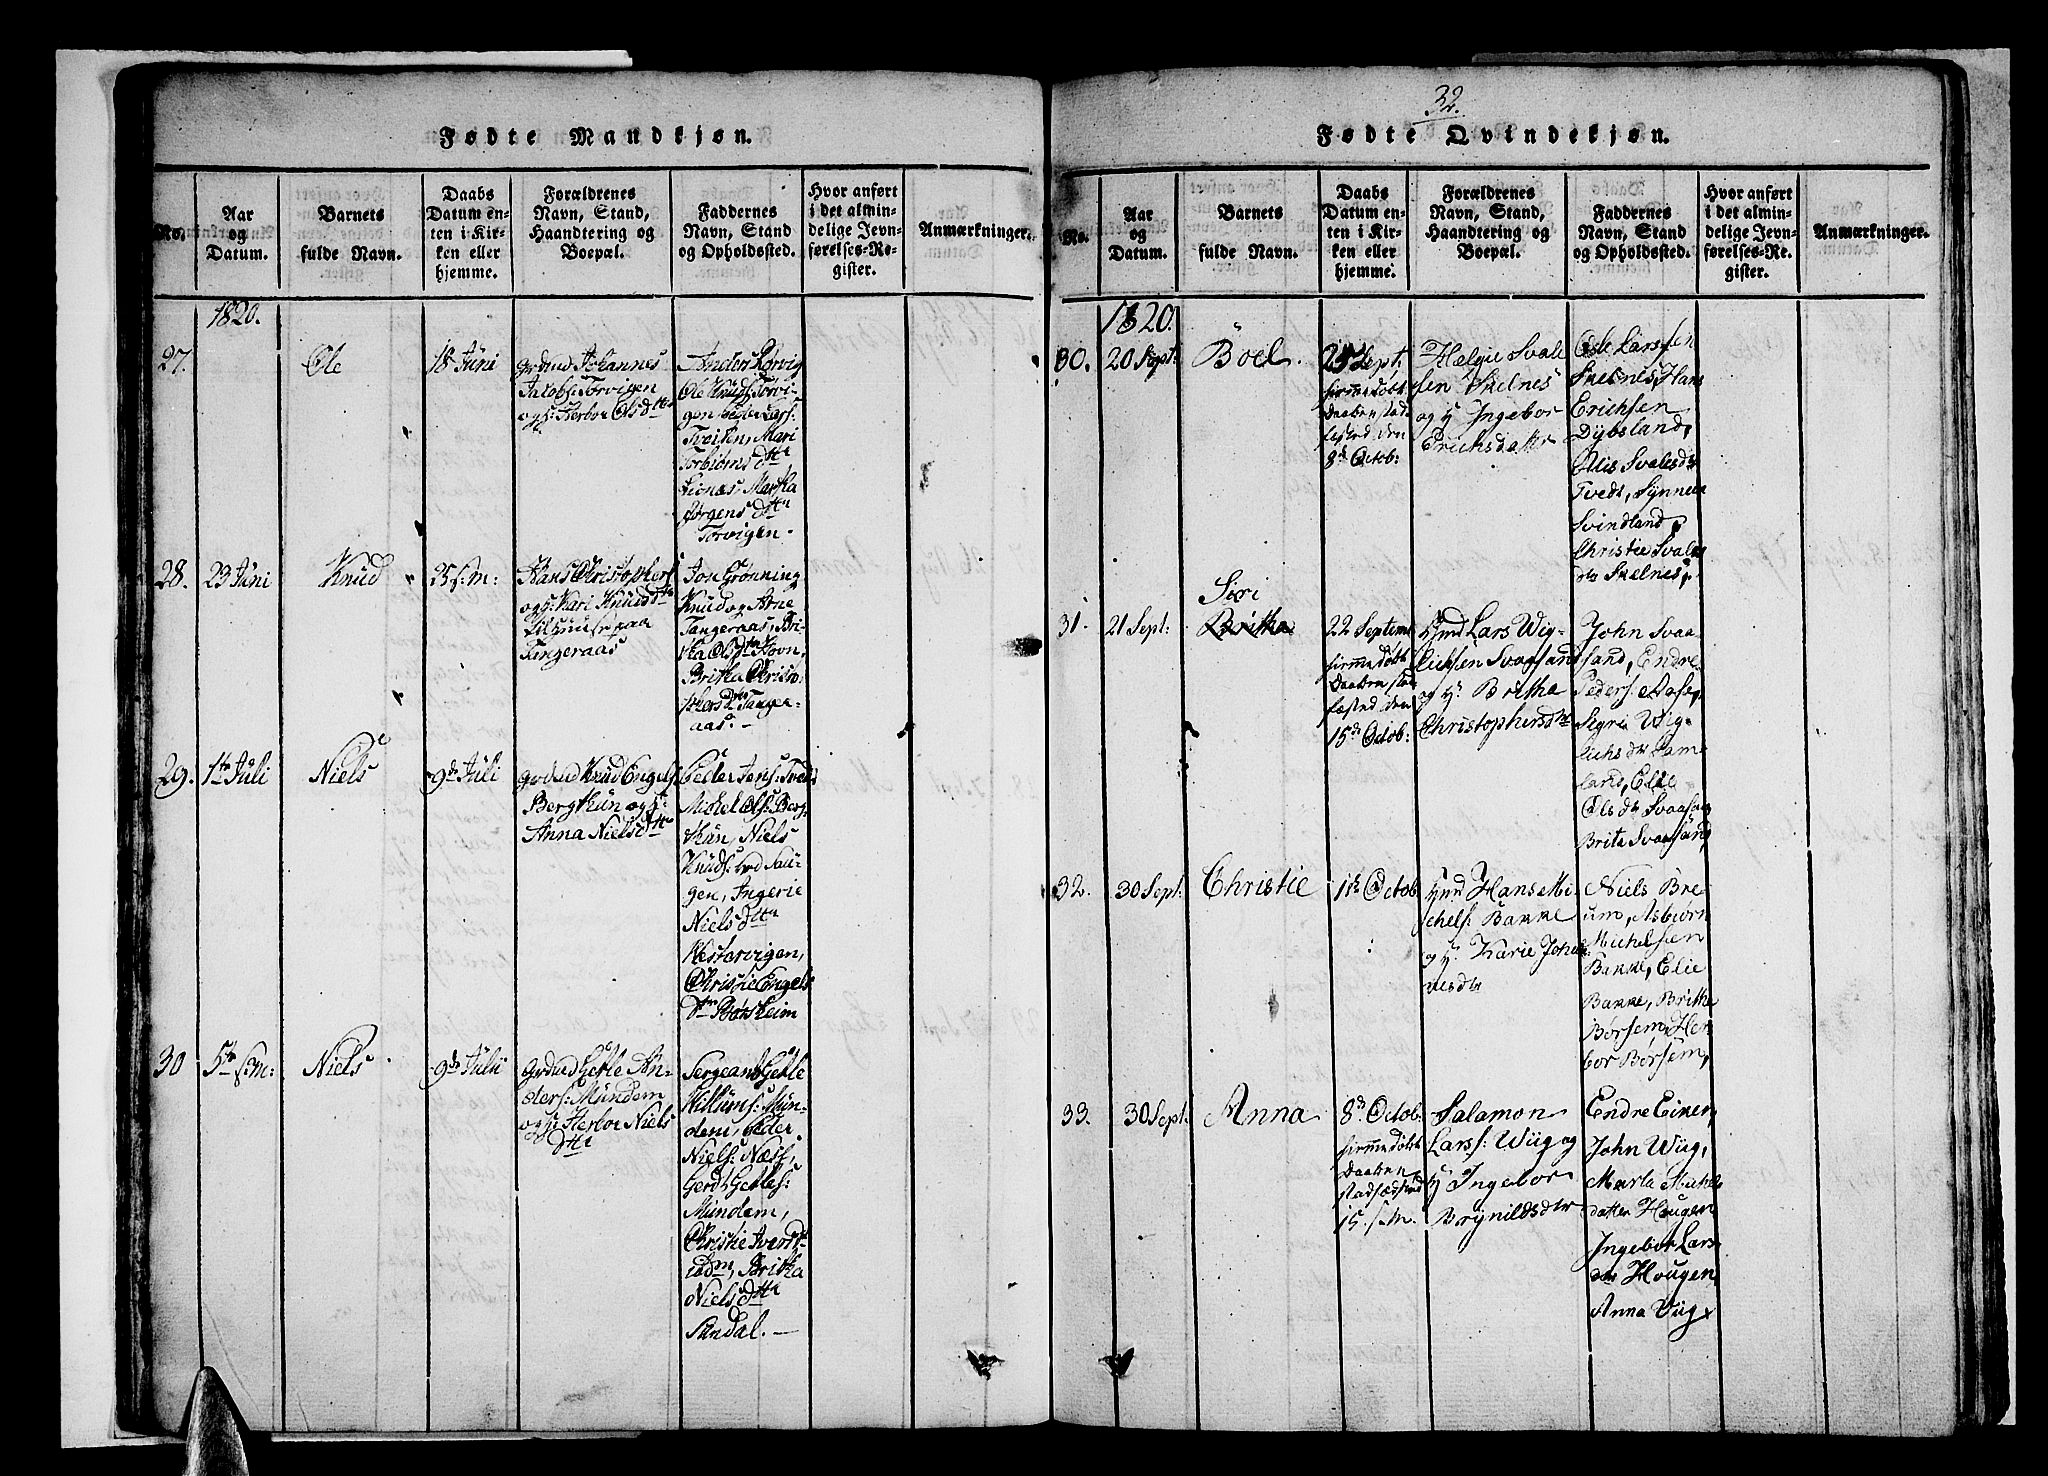 Fødte Mandkjøn.
No.
Aar
og
Datum.
Barnets
fulde Navn.
Daabs
Datum en-
ten i Kir-
ken eller
hjemme.
Forældrenes
Navn, Stand,
Haandtering og
Boepæl.
Faddernes
Navn, Stand
og Opholdssted.
Hvor anført
i det almin-
delige Jevn-
førelses-Re-
gister.
Anmærkninger.
1820.
27.
Ole
18 Juni
Johannes
Jacobs: Torvigen
Herbor Olsdttr
Anders Torvig
Ole Knuds: Torvi-
gen, Peder Lars:
Tveiten, Mari
Torbiørns dttr
Lionæs, Martha
Jørgens dttr
Torvigen.
28.
23 Juni
Knud
25 s: m:
Hans Christophers:
og h: Kari Knudsdttr
paa
Tangeraas
Jon Grønning
Knud og Arne
Tangeraas, Bri-
tha Olsdttr Hovn,
Britha Christo-
phersdtr Tanger-
aas. —
29.
1te Juli
Niels
9de Juli
Knud Engels:
Bergthun og h:
Anna Nielsdttr
Peder Jens: Tveit
Michel Ols: Berg-
thun, Niels
Knuds: Hau-
gen, Ingerie
Niels dttr
Mestervigen,
Christie Engels
dtr Botsheim
30
5te s: m:
Niels
9de Julii
Gietle An-
ders: Mundem
og h: Herbor Niels
dttr
Sergeant Gietle
Willums: Mun-
dem, Peder
Niels: Næss,
Gerdt Getles:
Mundem,
Christie Iversdtr
ibdm, Britha
Niels dttr
Sundal. —
32.
Fødte Qvindekjøn.
No.
Aar
og
Datum.
Barnets
fulde Navn.
Daabs
Datum en-
ten i Kir-
ken eller
hjemme.
Forældrenes
Navn, Stand,
Haandtering og
Boepæl.
Faddernes
Navn, Stand
og Opholdssted.
Hvor anført
i det almin-
delige Jevn-
førelses-Re-
gister.
Anmærkninger.
1820.
30.
20 Sept:
Böel.
Sept.
hiemmedøbt
Daaben stad-
fæsted den
8de Octob:
Hælgie Svale
sen Skelnes
og h: Ingebor
Erichsdatter
Ole Larssen
Skelnes, Hans
Erichsen
Dybsland,
Elis Svalesdtr
Tvedt, Synneva
Svindland,
Christie Svales
dtr Skelnes,
31.
21 Sept:
Siri
Britha
22 Septem:
hiemmedøbt
Daaben stad-
fæsted den
15de Octob:
Hmd Lars Wig-
lichsen Svaasand
og h: Britha
Christophersdtr
John Svaa-
sand, Endre
Peders: Aase,
Sigri Wig-
lichs dtr Sam-
land, Elie
Ols dtr Svaasan
Brita Svaasand,
32.
30 Sept:
Christie
1ste Octob:
Hmd Hans Mi-
chels: Bakke
og h: Karie Johan-
nesdtr
Niels Bre-
um, Asbiørn
Michelsen
Bakke, Elie
Bakke, Britha
Børsem, Her-
bor Børsem,
33.
30 Sept:
Anna
8de Octob:
hiemmedøbt
Daaben
stadfædsted
15. s. M.
Salamon
Lars: Wiig og
h: Ingebor
Brynildsdtr
Endre Eiker,
John Wiig,
Marta Michels
datter Hougen
Ingebor Lars
dtr Hougen
Anna Viig,